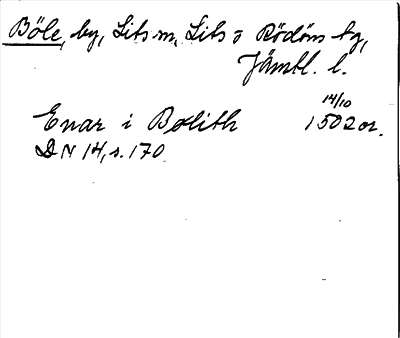 Böle, by, Lits m, Lits o Rödöns tg,
Jämtl. l.
14/10
Enar i Bølith 1502 or.
DN 14, s. 170